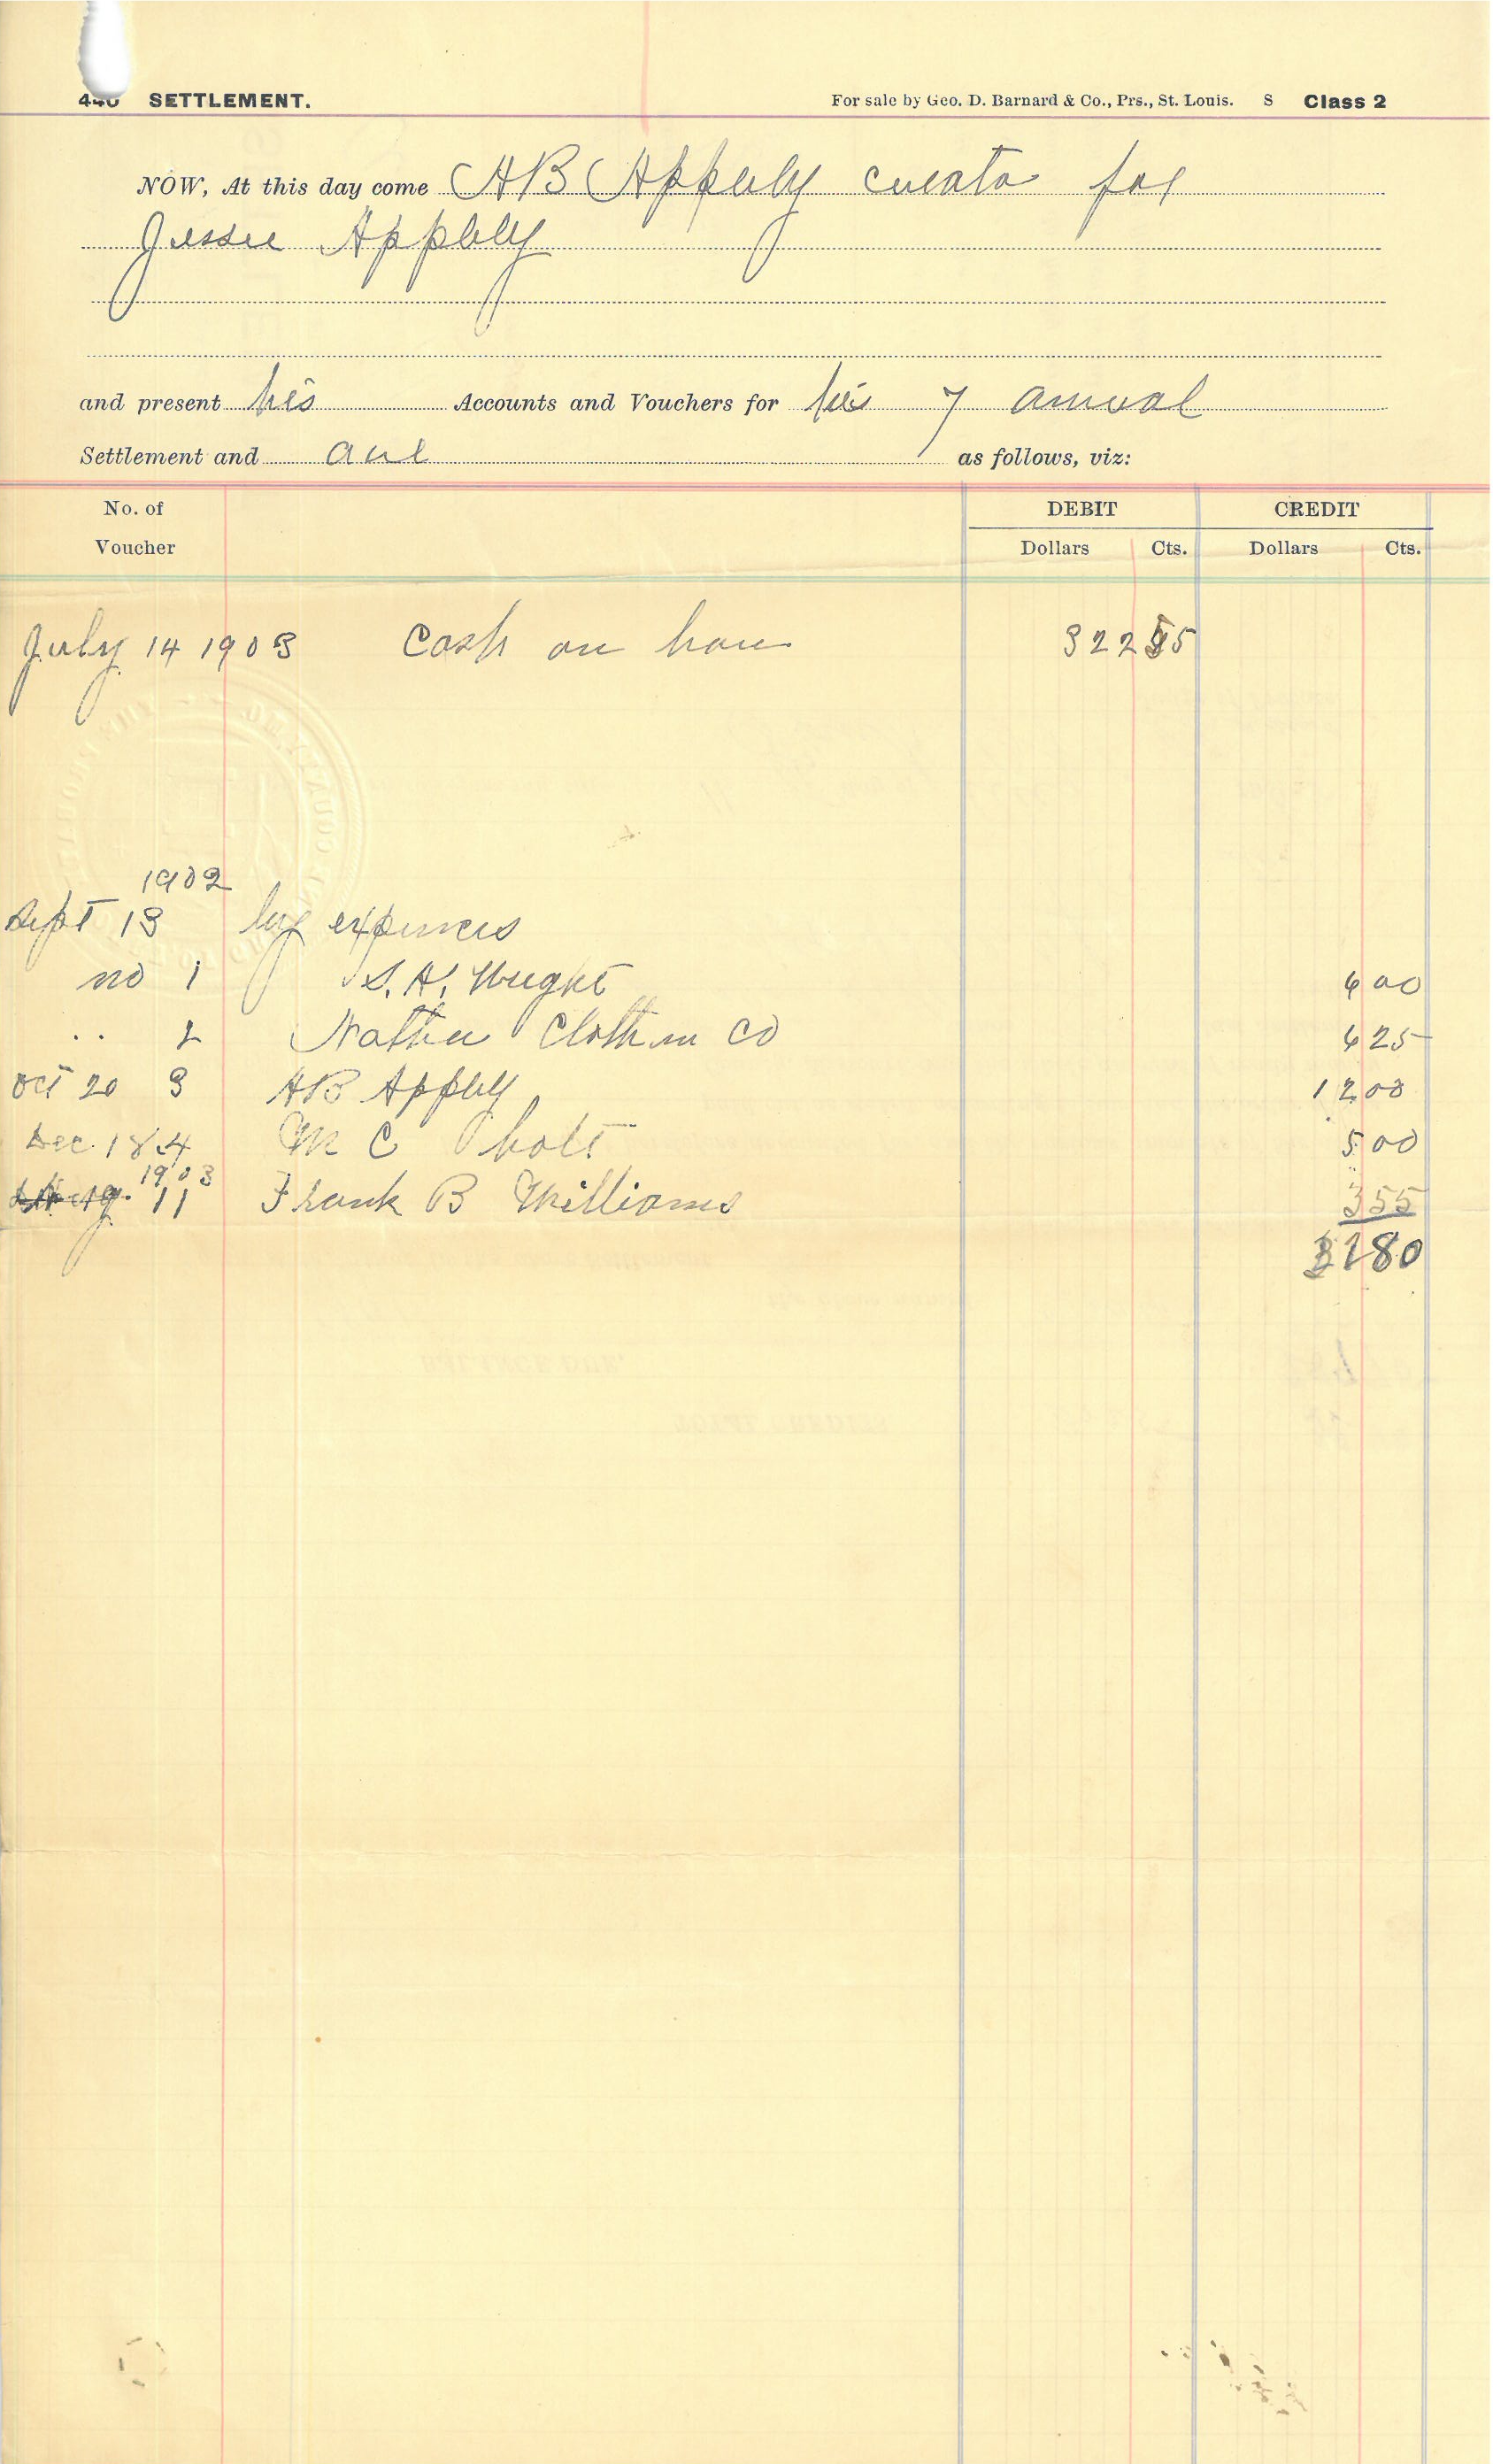 440 SETTLEMENT. For sale by Geo. D. Barnard & Co., Prs., St. Louis. S Class 2
NOW, At this day come AB Appely curato for
Jessee Appbly
and present his Accounts and Vouchers for his 7 annual
Settlement and as follows, viz:
No. of Voucher DEBIT CREDIT
Dollars Cts. Dollars Cts.
July 14 1903 Cash on han 322 55
1902
Sept 13 by expences
no 1 S. H. Wright 6 00
.. 2 Clothin Co 6 25
Oct 20 3 AB Appbly 12 00
Dec. 18 4 M C holt 5 00
1903
Aug. 11 Frank B Williams 3 55
180